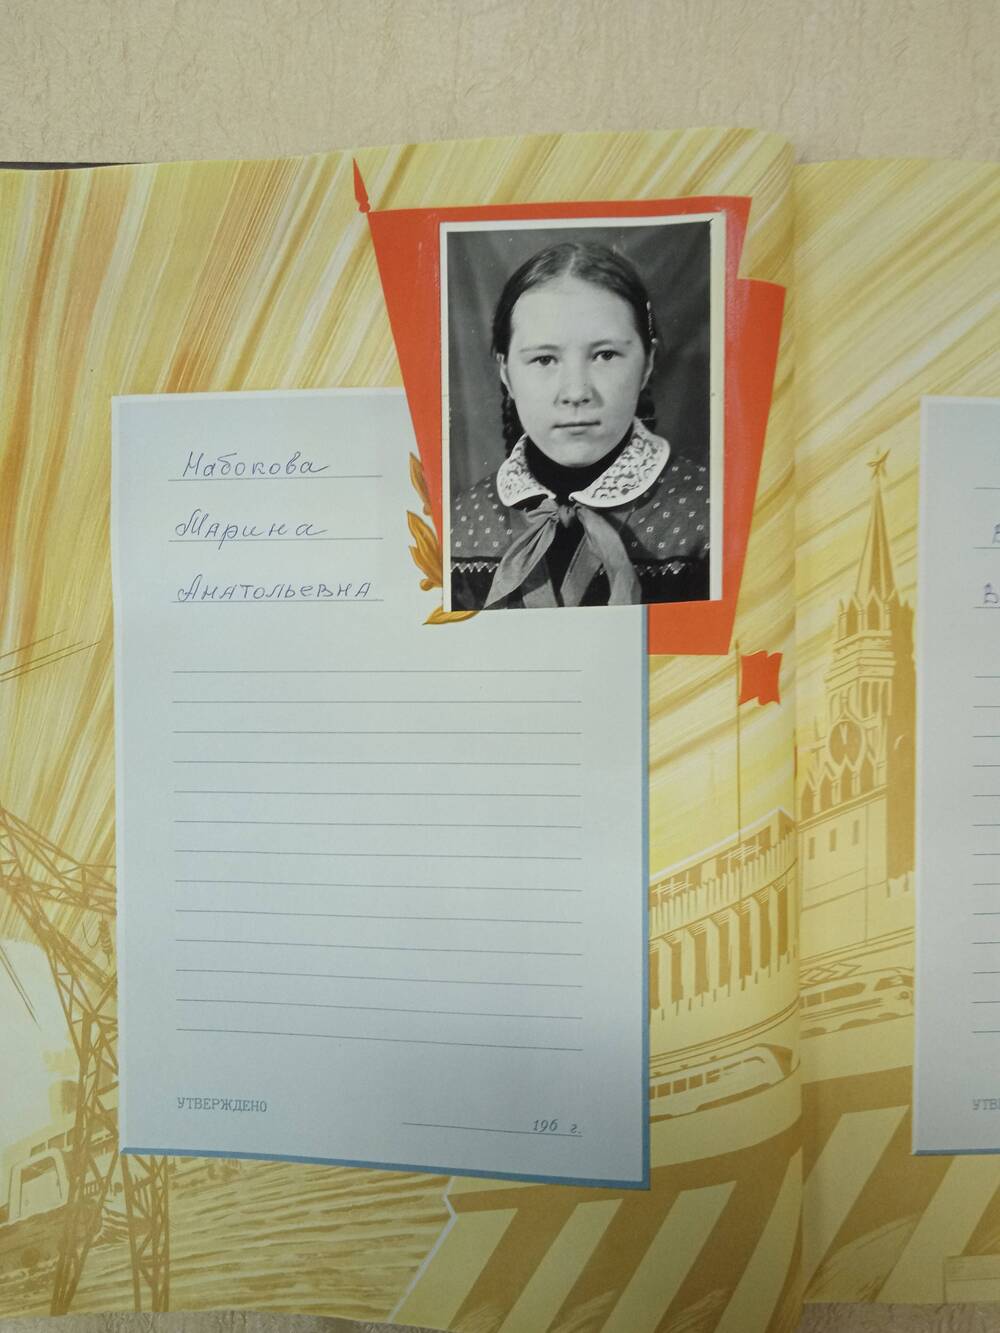 Набокова
Марина
Анатольевна
УТВЕРЖДЕНО
196 г.
В
УТВ